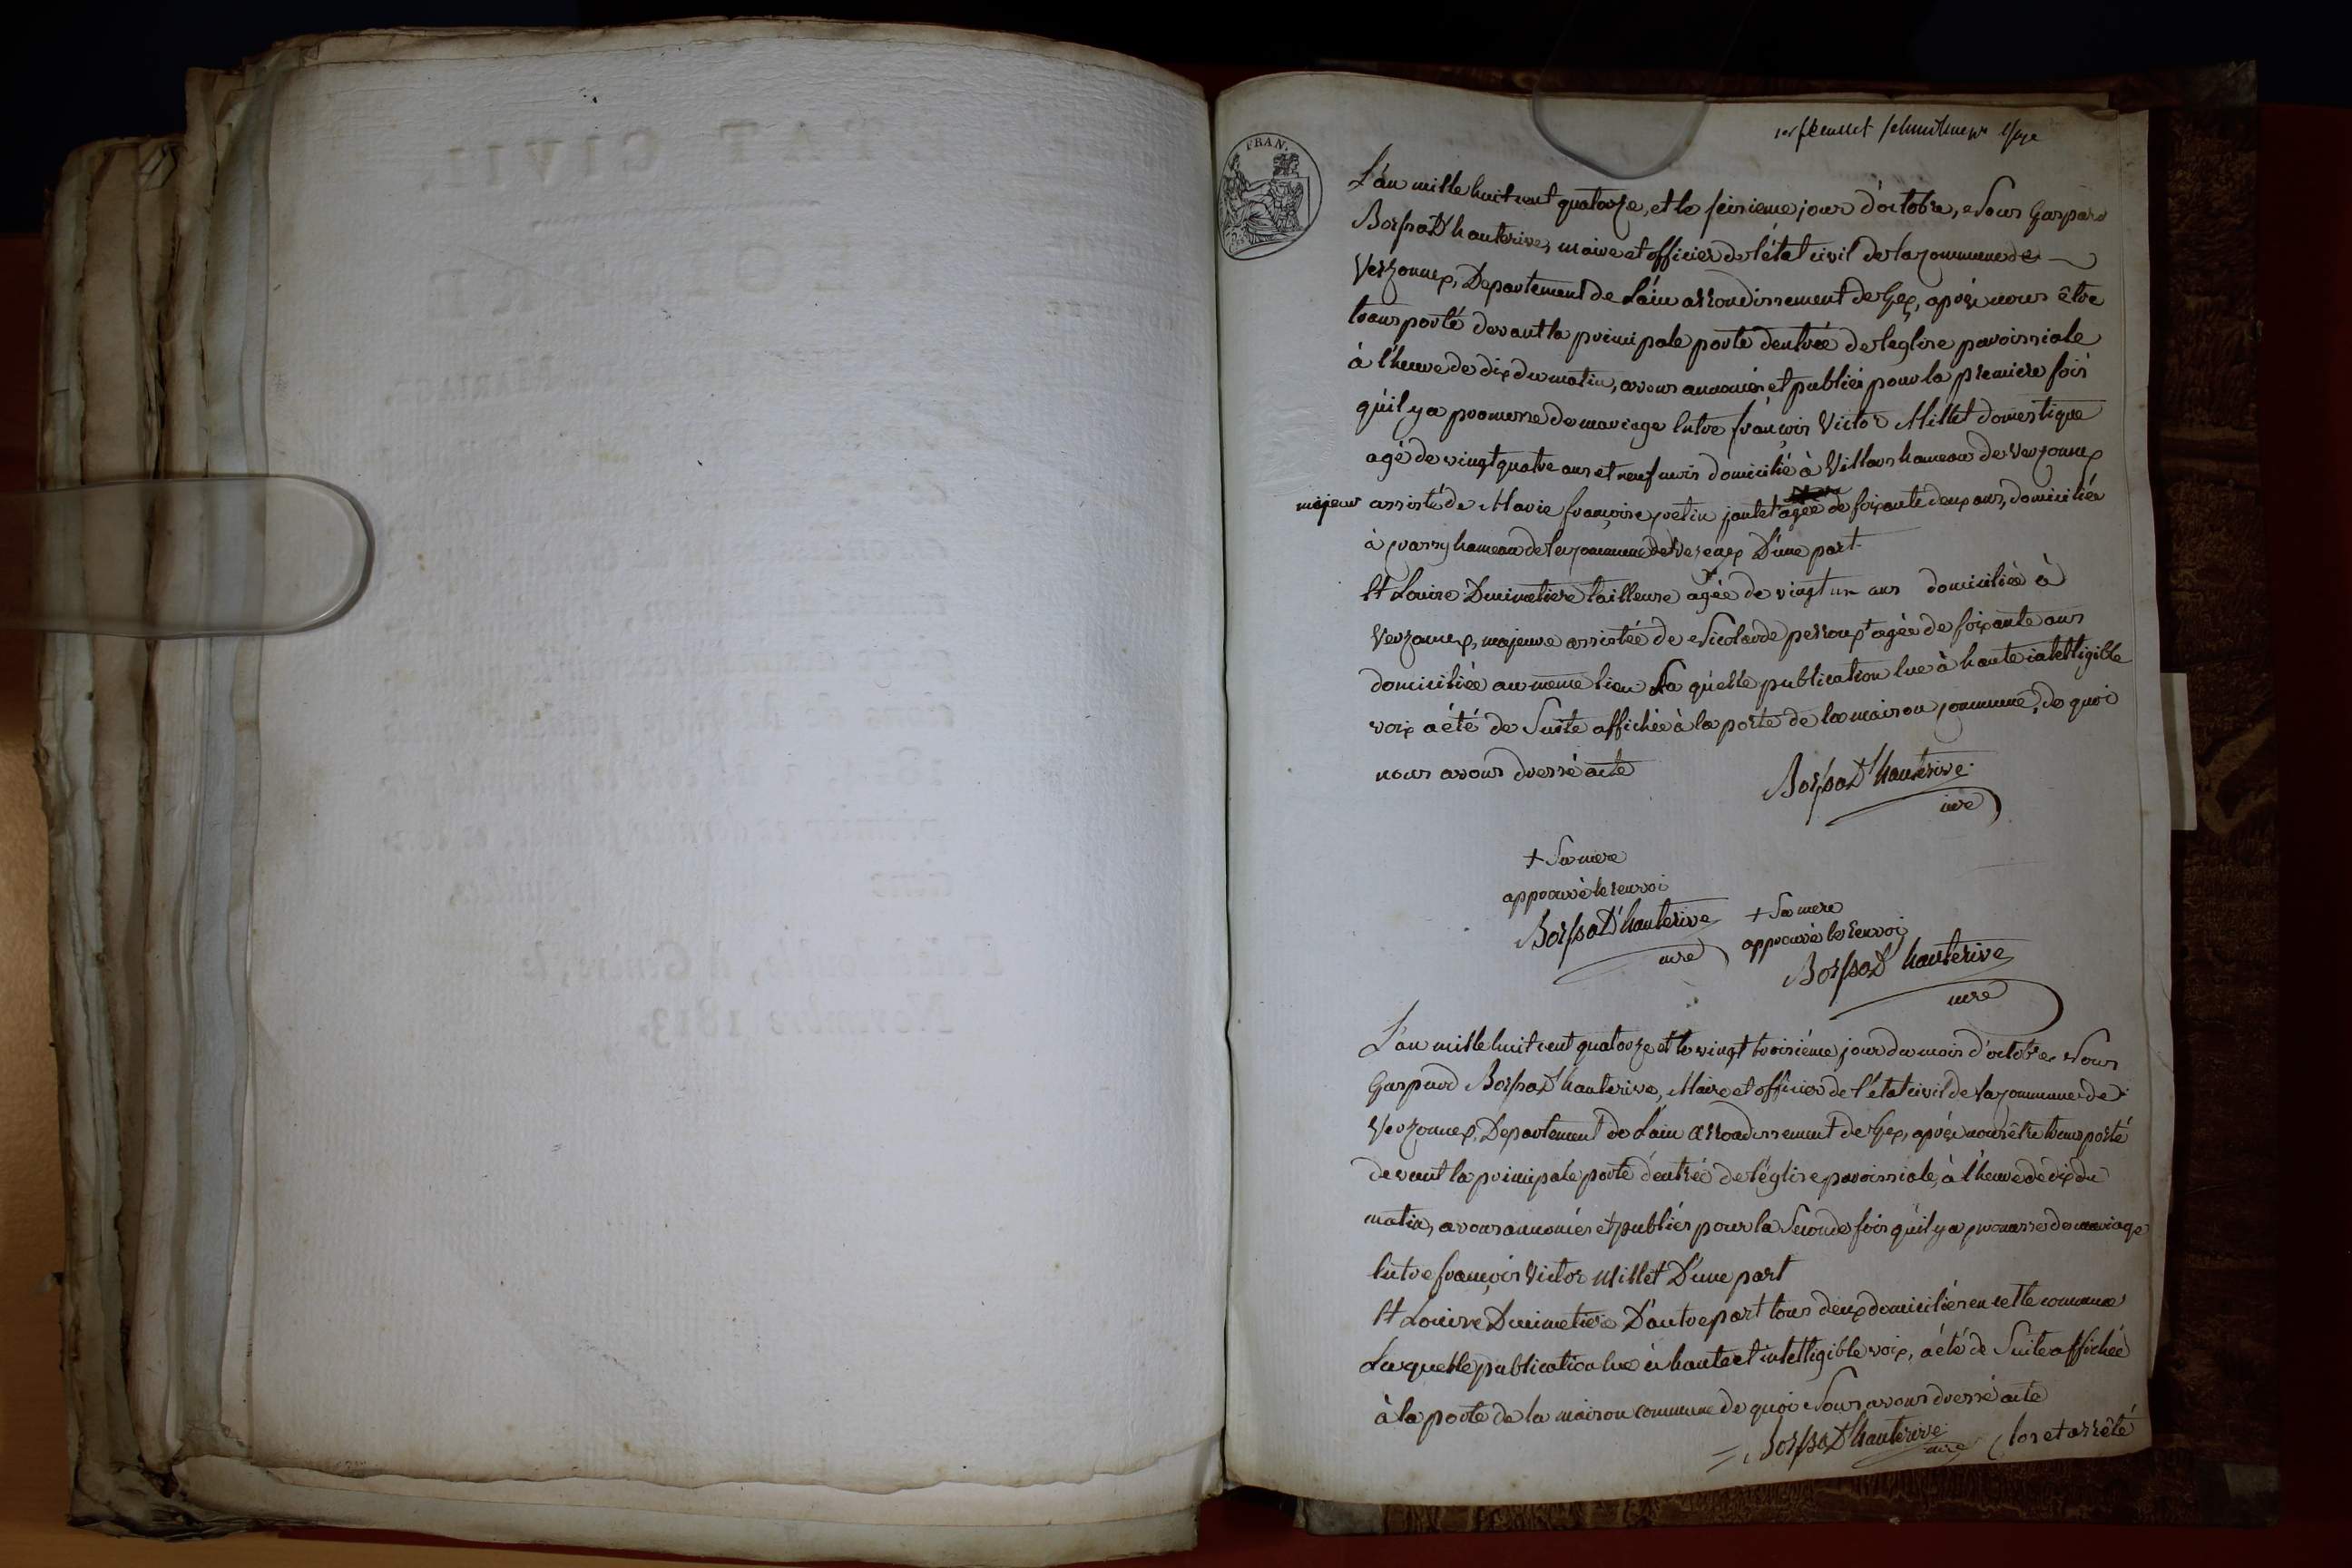 FRAN.
L'an mille huit cent quatorze, et le seizieme jour d'octobre, Nous Gaspard
Borssat D'hauterive, maire et officier de l'état civil de la commune de
Versonnex, Departement de Lain arrondissement de Gex, après nous être
transporté devant la principale porte dentrée de léglise paroissiale
à l'heure de dix du matin, avons annoncés et publiés pour la premiere fois
qu'il y a promesse de mariage Entre françois Victor Millet domestique
agé de vingt quatre ans et neuf mois domicilié à Villars hameau de Versonnex
majeur assisté de Marie françoise jantet + agée de soixante deux ans, domiciliée
à hameau de la commune de D'une part
Et Louise Dumetiere tailleuse agée de vingt un ans domiciliée à
Versonnex, majeure assistée de Nicolarde perroux + agée de soixante ans
domiciliée au meme lieu La quelle publication lue à haute intelligible
voix a été de Suite affichée à la porte de la maison commune, de quoi
nous avons dressé acte
Borssat D'hauterive
mre
+ Sa mere
approuvé le renvoi
Borssat D'hauterive
mre
+ Sa mere
approuvé le renvoi
Borssat D'hauterive
mre
L'an mille huit cent quatorze et le vingt troisiéme jour du mois d'octobre Nous
Gaspard Borssat D'hauterive, Maire et officier de l'état civil de la commune de
Versonnex, Departement de Lain arrondissement de Gex, après nous être transporté
devant la principale porte d'entrée de l'église paroissiale, à l'heure de dix du
matin, avons annoncés et publiés pour la Seconde fois qu'il y a promesse de mariage
Entre françois Victor Millet D'une part
Et Louise Dumetiere D'autre part tous deux domiciliés en cette commune
Laquelle publication lue à haute et intelligible voix, a été de Suite affichée
à la porte de la maison commune de quoi Nous avons dressé acte
Borssat D'hauterive mre Clos et arrêté